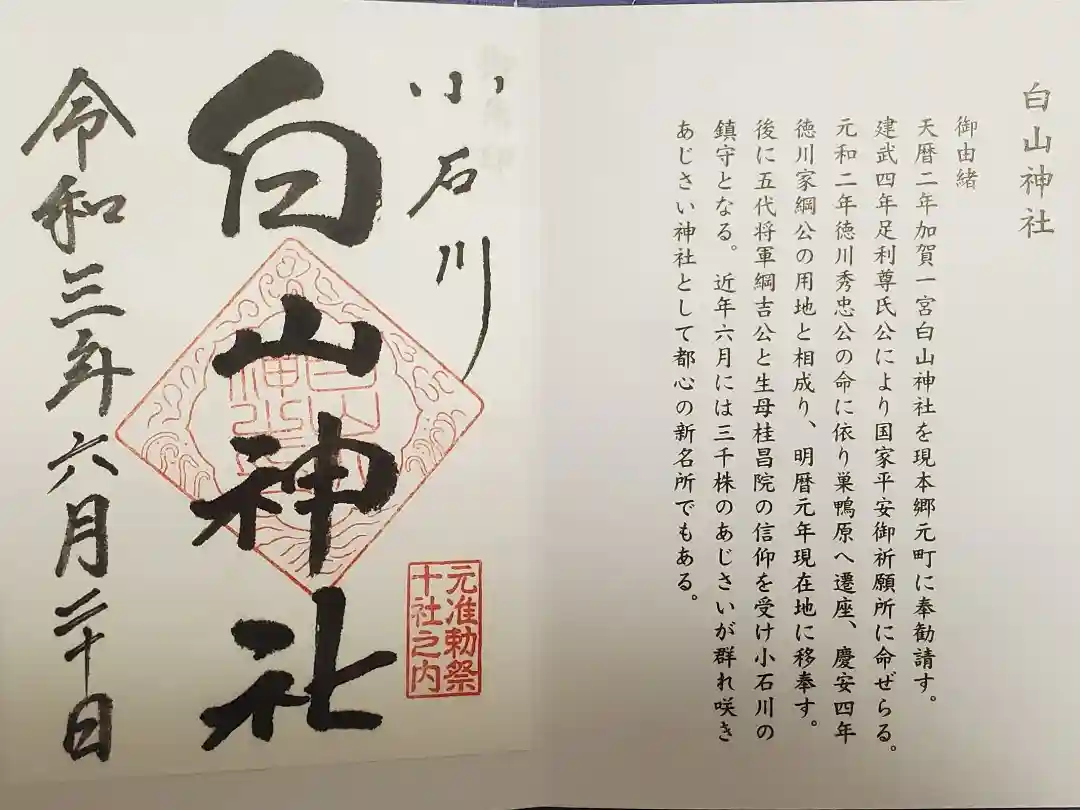 白山神社
御由緒
天暦二年加賀一宮白山神社を現本郷元町に奉勧請す。
建武四年足利尊氏公により国家平安御祈願所に命ぜらる。
元和二年徳川秀忠公の命に依り巣鴨原へ遷座、慶安四年
徳川家綱公の用地と相成り、明暦元年現在地に移奉す。
後に五代将軍綱吉公と生母桂昌院の信仰を受け小石川の
鎮守となる。近年六月には三千株のあじさいが群れ咲き
あじさい神社として都心の新名所でもある。
小石川
元准勅祭
十社之内
白山神社
令和三年六月二十日